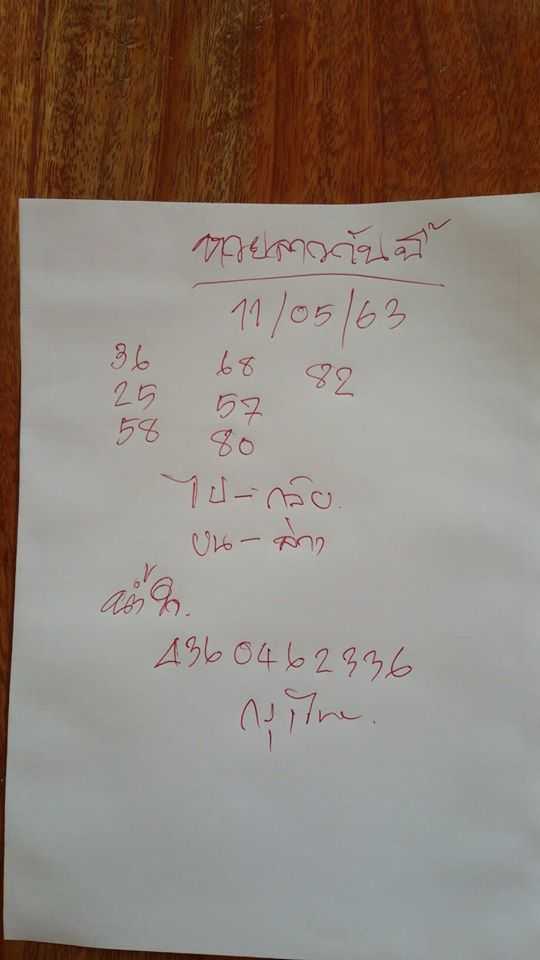 หวยลาววันนี้
11/05/63
36 68 82
25 57
58 80
ไป-กลับ.
บน-ล่าง
4360462336
กรุงไทย.